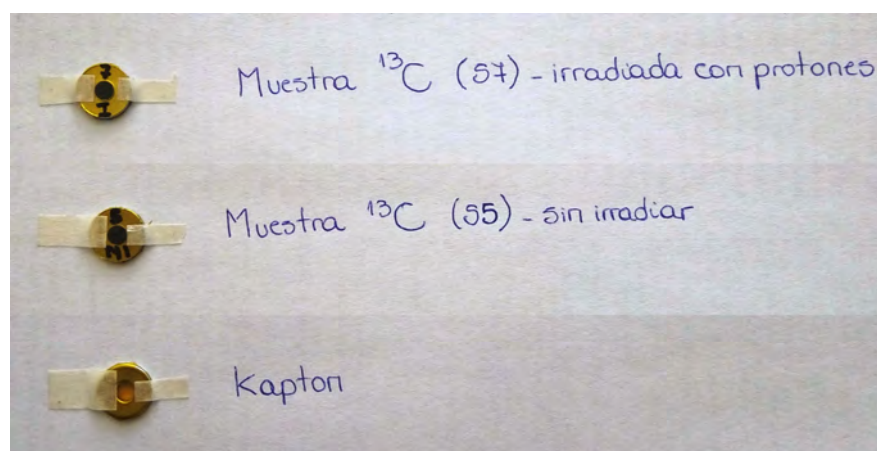 Muestra ¹³C (S7) - irradiada con protones
Muestra ¹³C (S5) - sin irradiar
Kapton